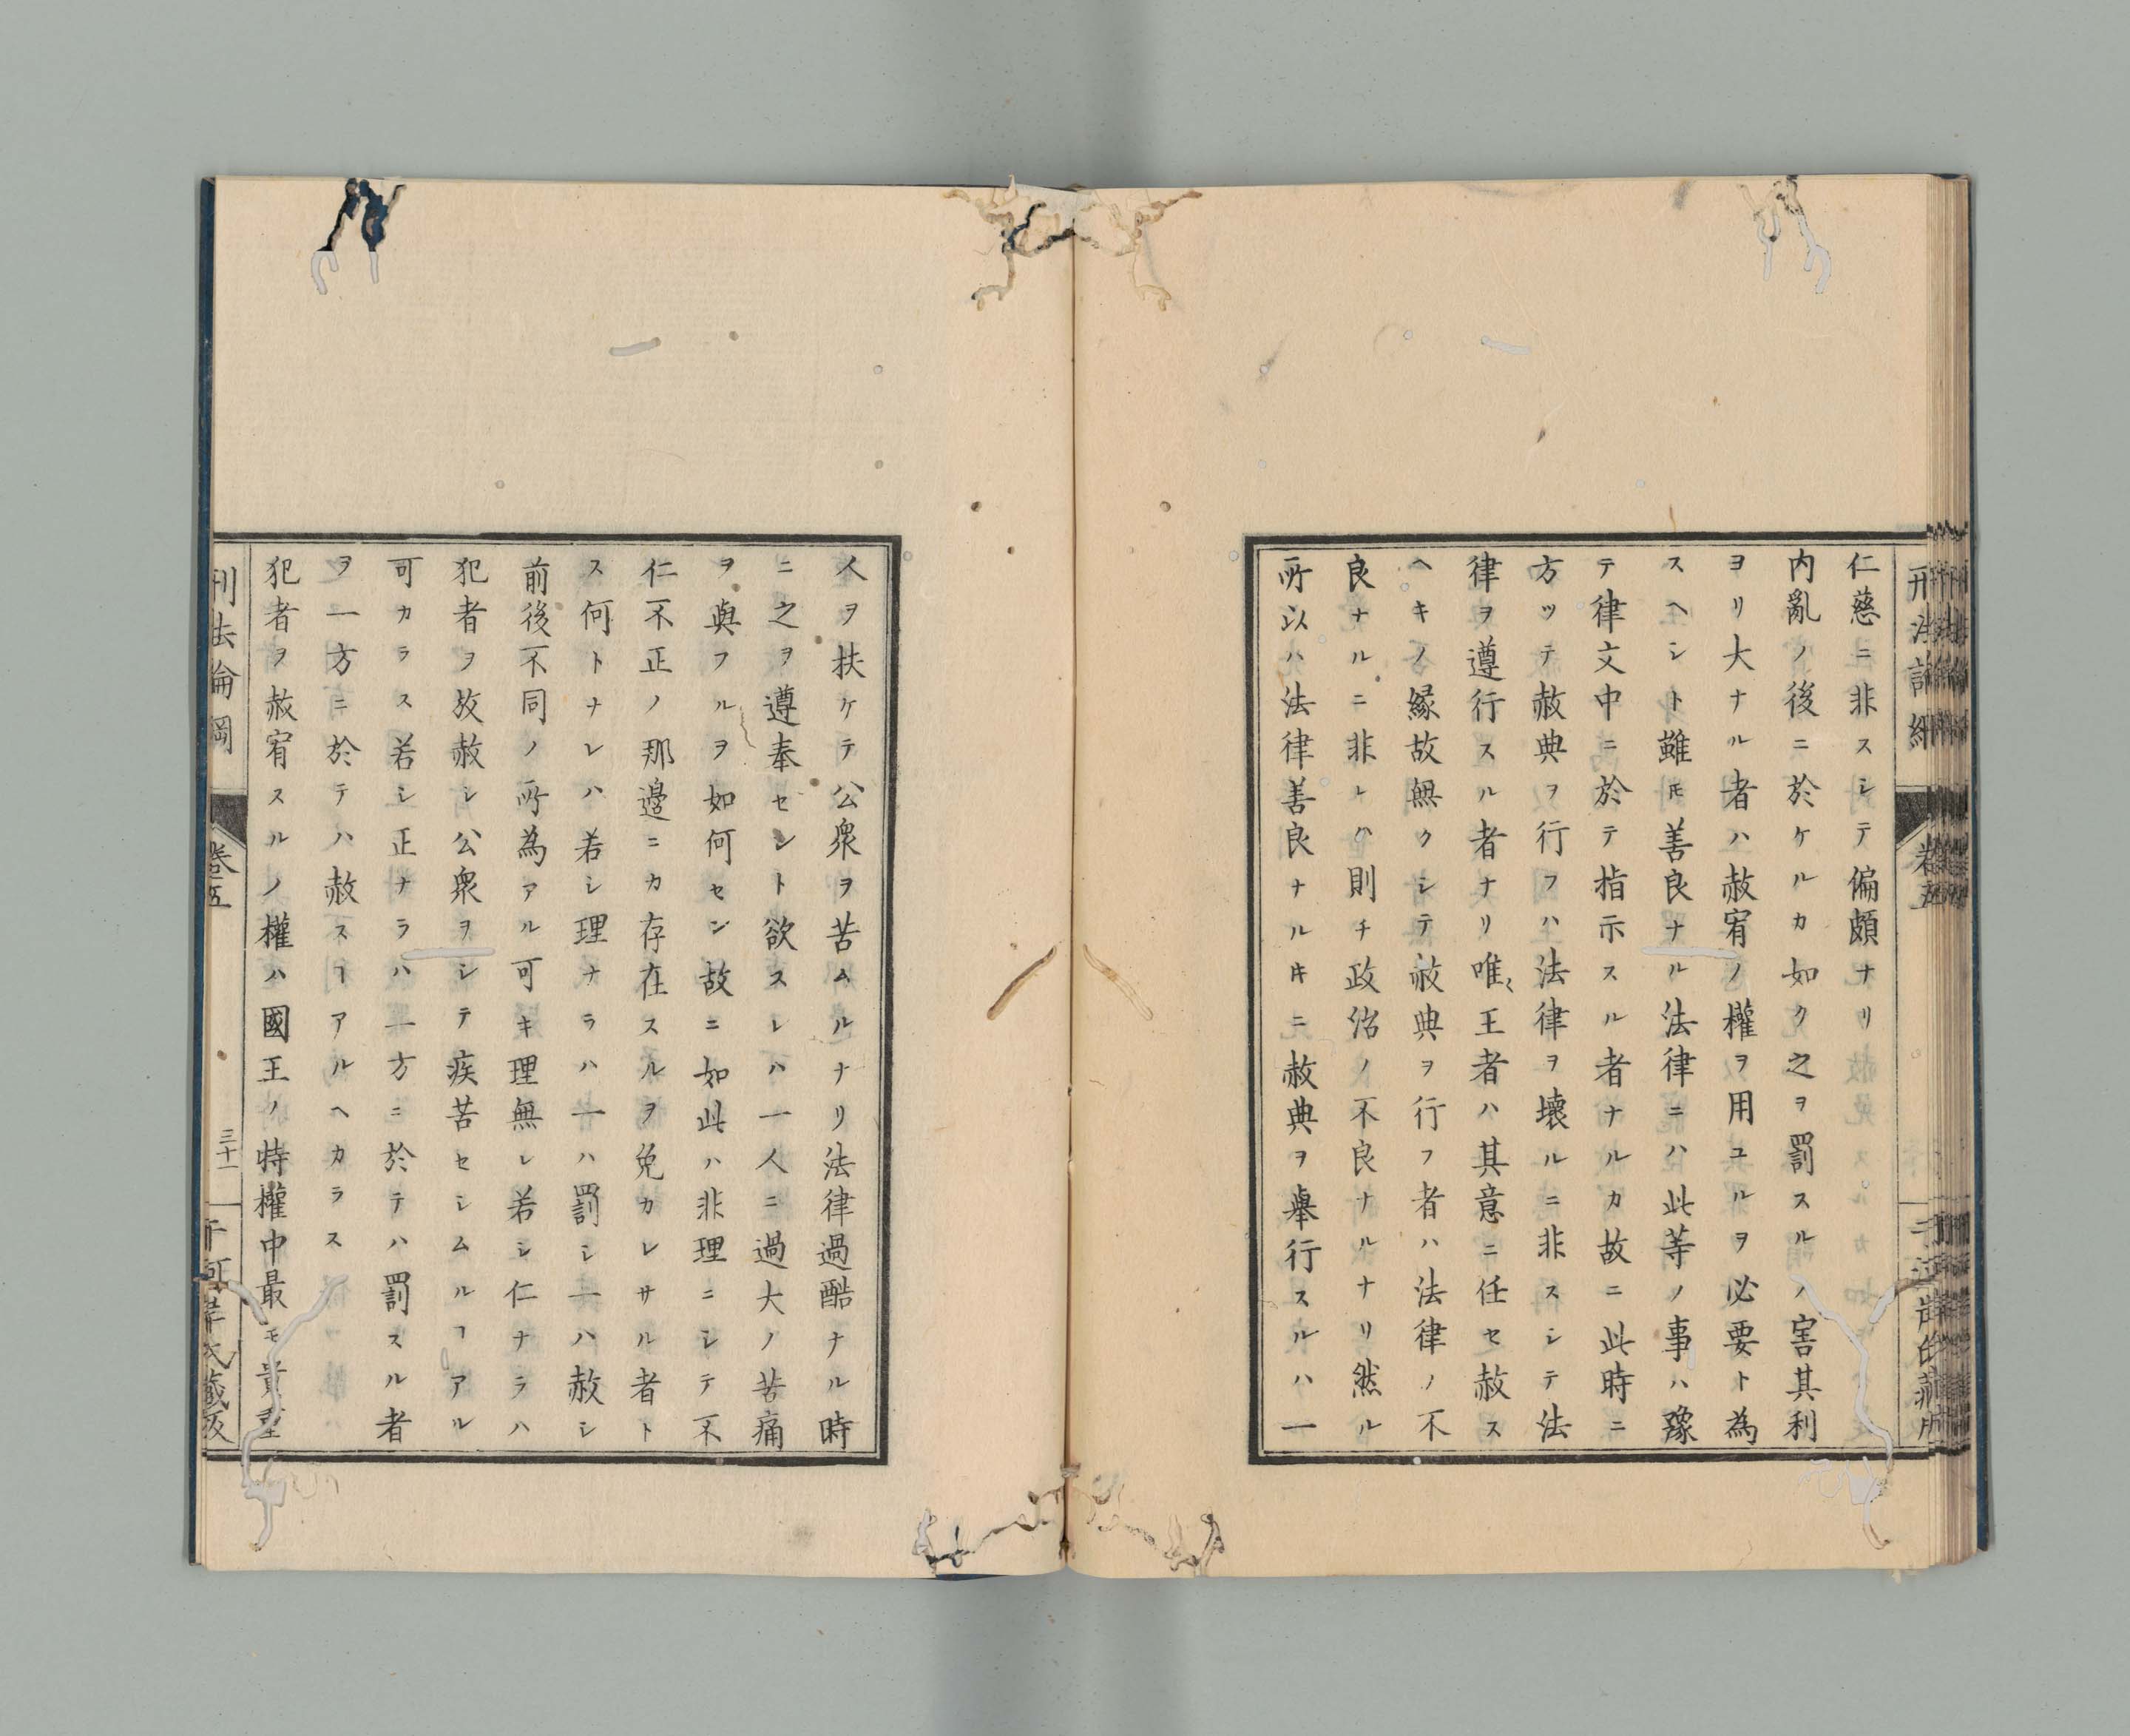 仁慈ニ非スシテ偏頗ナリ
内亂ノ後ニ於ケルカ如ク之ヲ罰スルノ害其利
ヨリ大ナル者ハ赦宥ノ權ヲ用ユルヲ必要ト為
スヘシト雖𪜈善良ナル法律ニハ此等ノ事ハ豫
テ律文中ニ於テ指示スル者ナルカ故ニ此時ニ
方ツテ赦典ヲ行フハ法律ヲ壊ルニ非スシテ法
律ヲ遵行スル者ナリ唯王者ハ其意ニ任セ赦ス
ヘキノ縁故無クシテ赦典ヲ行フ者ハ法律ノ不
良ナルニ非レハ則チ政治ノ不良ナルナリ然ル
所以ハ法律善良ナルキニ赦典ヲ擧行スルハ一
人ヲ扶ケテ公衆ヲ苦ムルナリ法律過酷ナル時
ニ之ヲ遵奉セント欲スレハ一人ニ過大ノ苦痛
ヲ與フルヲ如何セン故ニ如此ハ非理ニシテ不
仁不正ノ那邊ニカ存在スルヲ免カレサル者ト
ス何トナレハ若シ理ナラハ一ハ罰シ一ハ赦シ
前後不同ノ所為アル可キ理無レ若シ仁ナラハ
犯者ヲ放赦シ公衆ヲシテ疾苦セシムルヿアル
可カラス若シ正ナラハ一方ニ於テハ罰スル者
ヲ一方ニ於テハ赦スヿアルヘカラス
犯者ヲ赦宥スルノ權ハ國王ノ特權中最モ貴重
刑法論綱
卷五
三十一